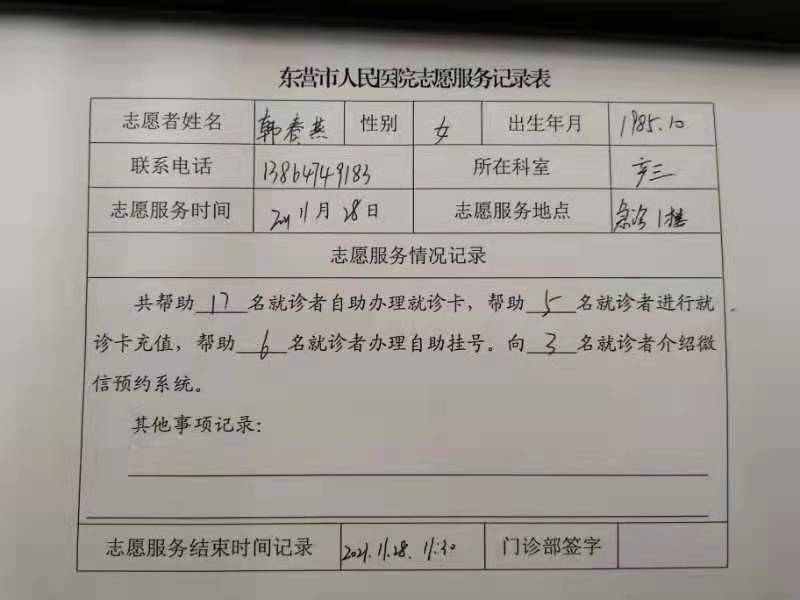 东营市人民医院志愿服务记录表
志愿者姓名 韩春燕 性别 女 出生年月 1985.10
联系电话 13864749183 所在科室 产三
志愿服务时间 2021 11月28日 志愿服务地点 急诊1楼
志愿服务情况记录
共帮助17名就诊者自助办理就诊卡，帮助5名就诊者进行就
诊卡充值，帮助6名就诊者办理自助挂号。向3名就诊者介绍微
信预约系统。
其他事项记录：
志愿服务结束时间记录 2021.11.28. 11:30 门诊部签字